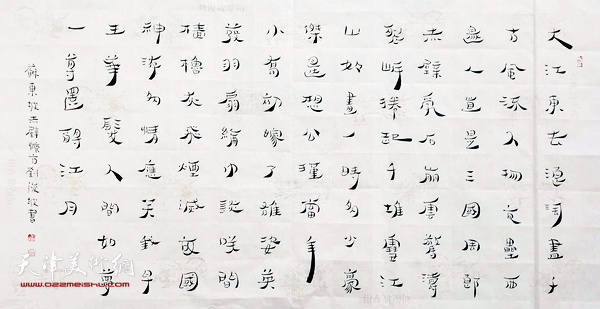 大江東去浪淘盡千
古風流人物故壘西
邊人道是三國周郎
赤壁亂石崩雲驚濤
裂岸捲起千堆雪江
山如畫一時多少豪
傑遙想公瑾當年
小喬初嫁了雄姿英
發羽扇綸巾談笑間
檣櫓灰飛煙滅故國
神游多情應笑我早
生華髮人間如夢
一尊還酹江月
蘇東坡赤壁懷古劉書
天津美術網
www.022meishu.com